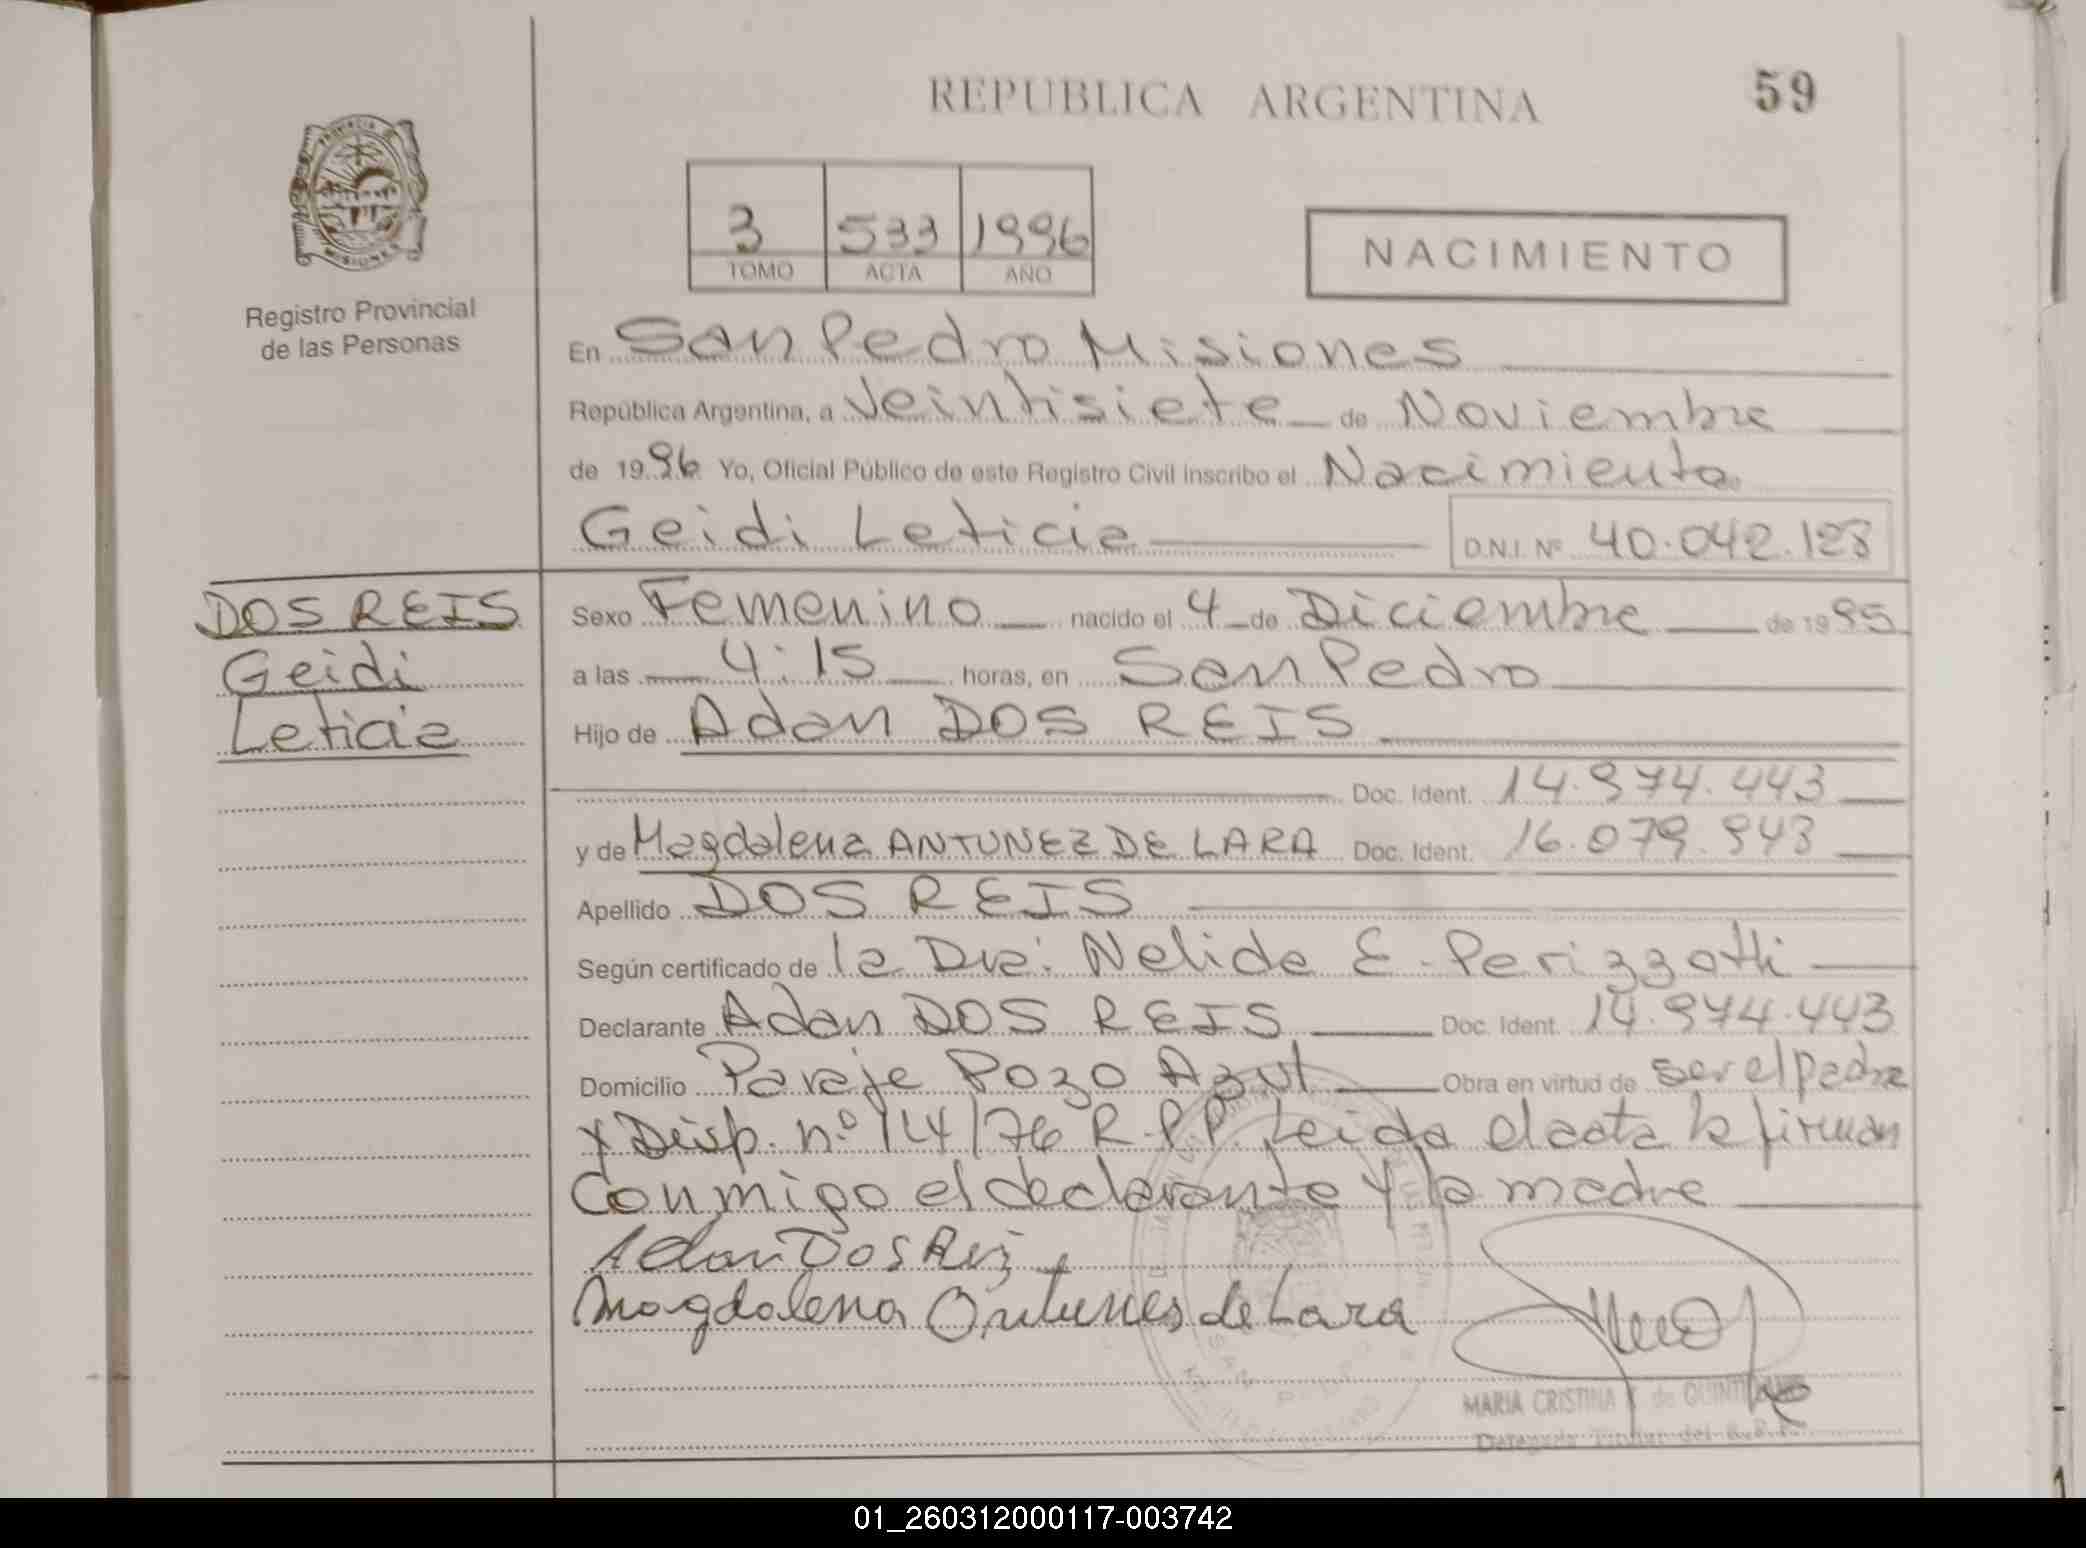 REPUBLICA ARGENTINA
59
PROVINCIA
MISIONES
Registro Provincial
de las Personas
3 533 1996
TOMO ACTA AÑO
NACIMIENTO
En San Pedro Misiones
República Argentina, a Veintisiete de Noviembre
de 1996 Yo, Oficial Público de este Registro Civil inscribo el Nacimiento
Geidi Leticia D.N.I. Nº 40.042.128
DOS REIS
Geidi
Leticia
Sexo Femenino nacido el 4 de Diciembre de 1995
a las 4:15 horas, en San Pedro
Hijo de Adan DOS REIS
Doc. Ident. 14.974.443
y de Magdalena ANTUNEZ DE LARA Doc. Ident. 16.079.943
Apellido DOS REIS
Según certificado de la Dra: Nelida E. Perizzotti
Declarante Adan DOS REIS Doc. Ident. 14.974.443
Domicilio Paraje Pozo Azul Obra en virtud de ser el padre
y Disp. nº 14/76 R.P.P. Leida el acta la firman
Conmigo el declarante y la madre
Adan Dos Reis
Magdalena Antunes de Lara
SAN PEDRO
MARIA CRISTINA de
Delegada Titular del R.P.P.
01_260312000117-003742